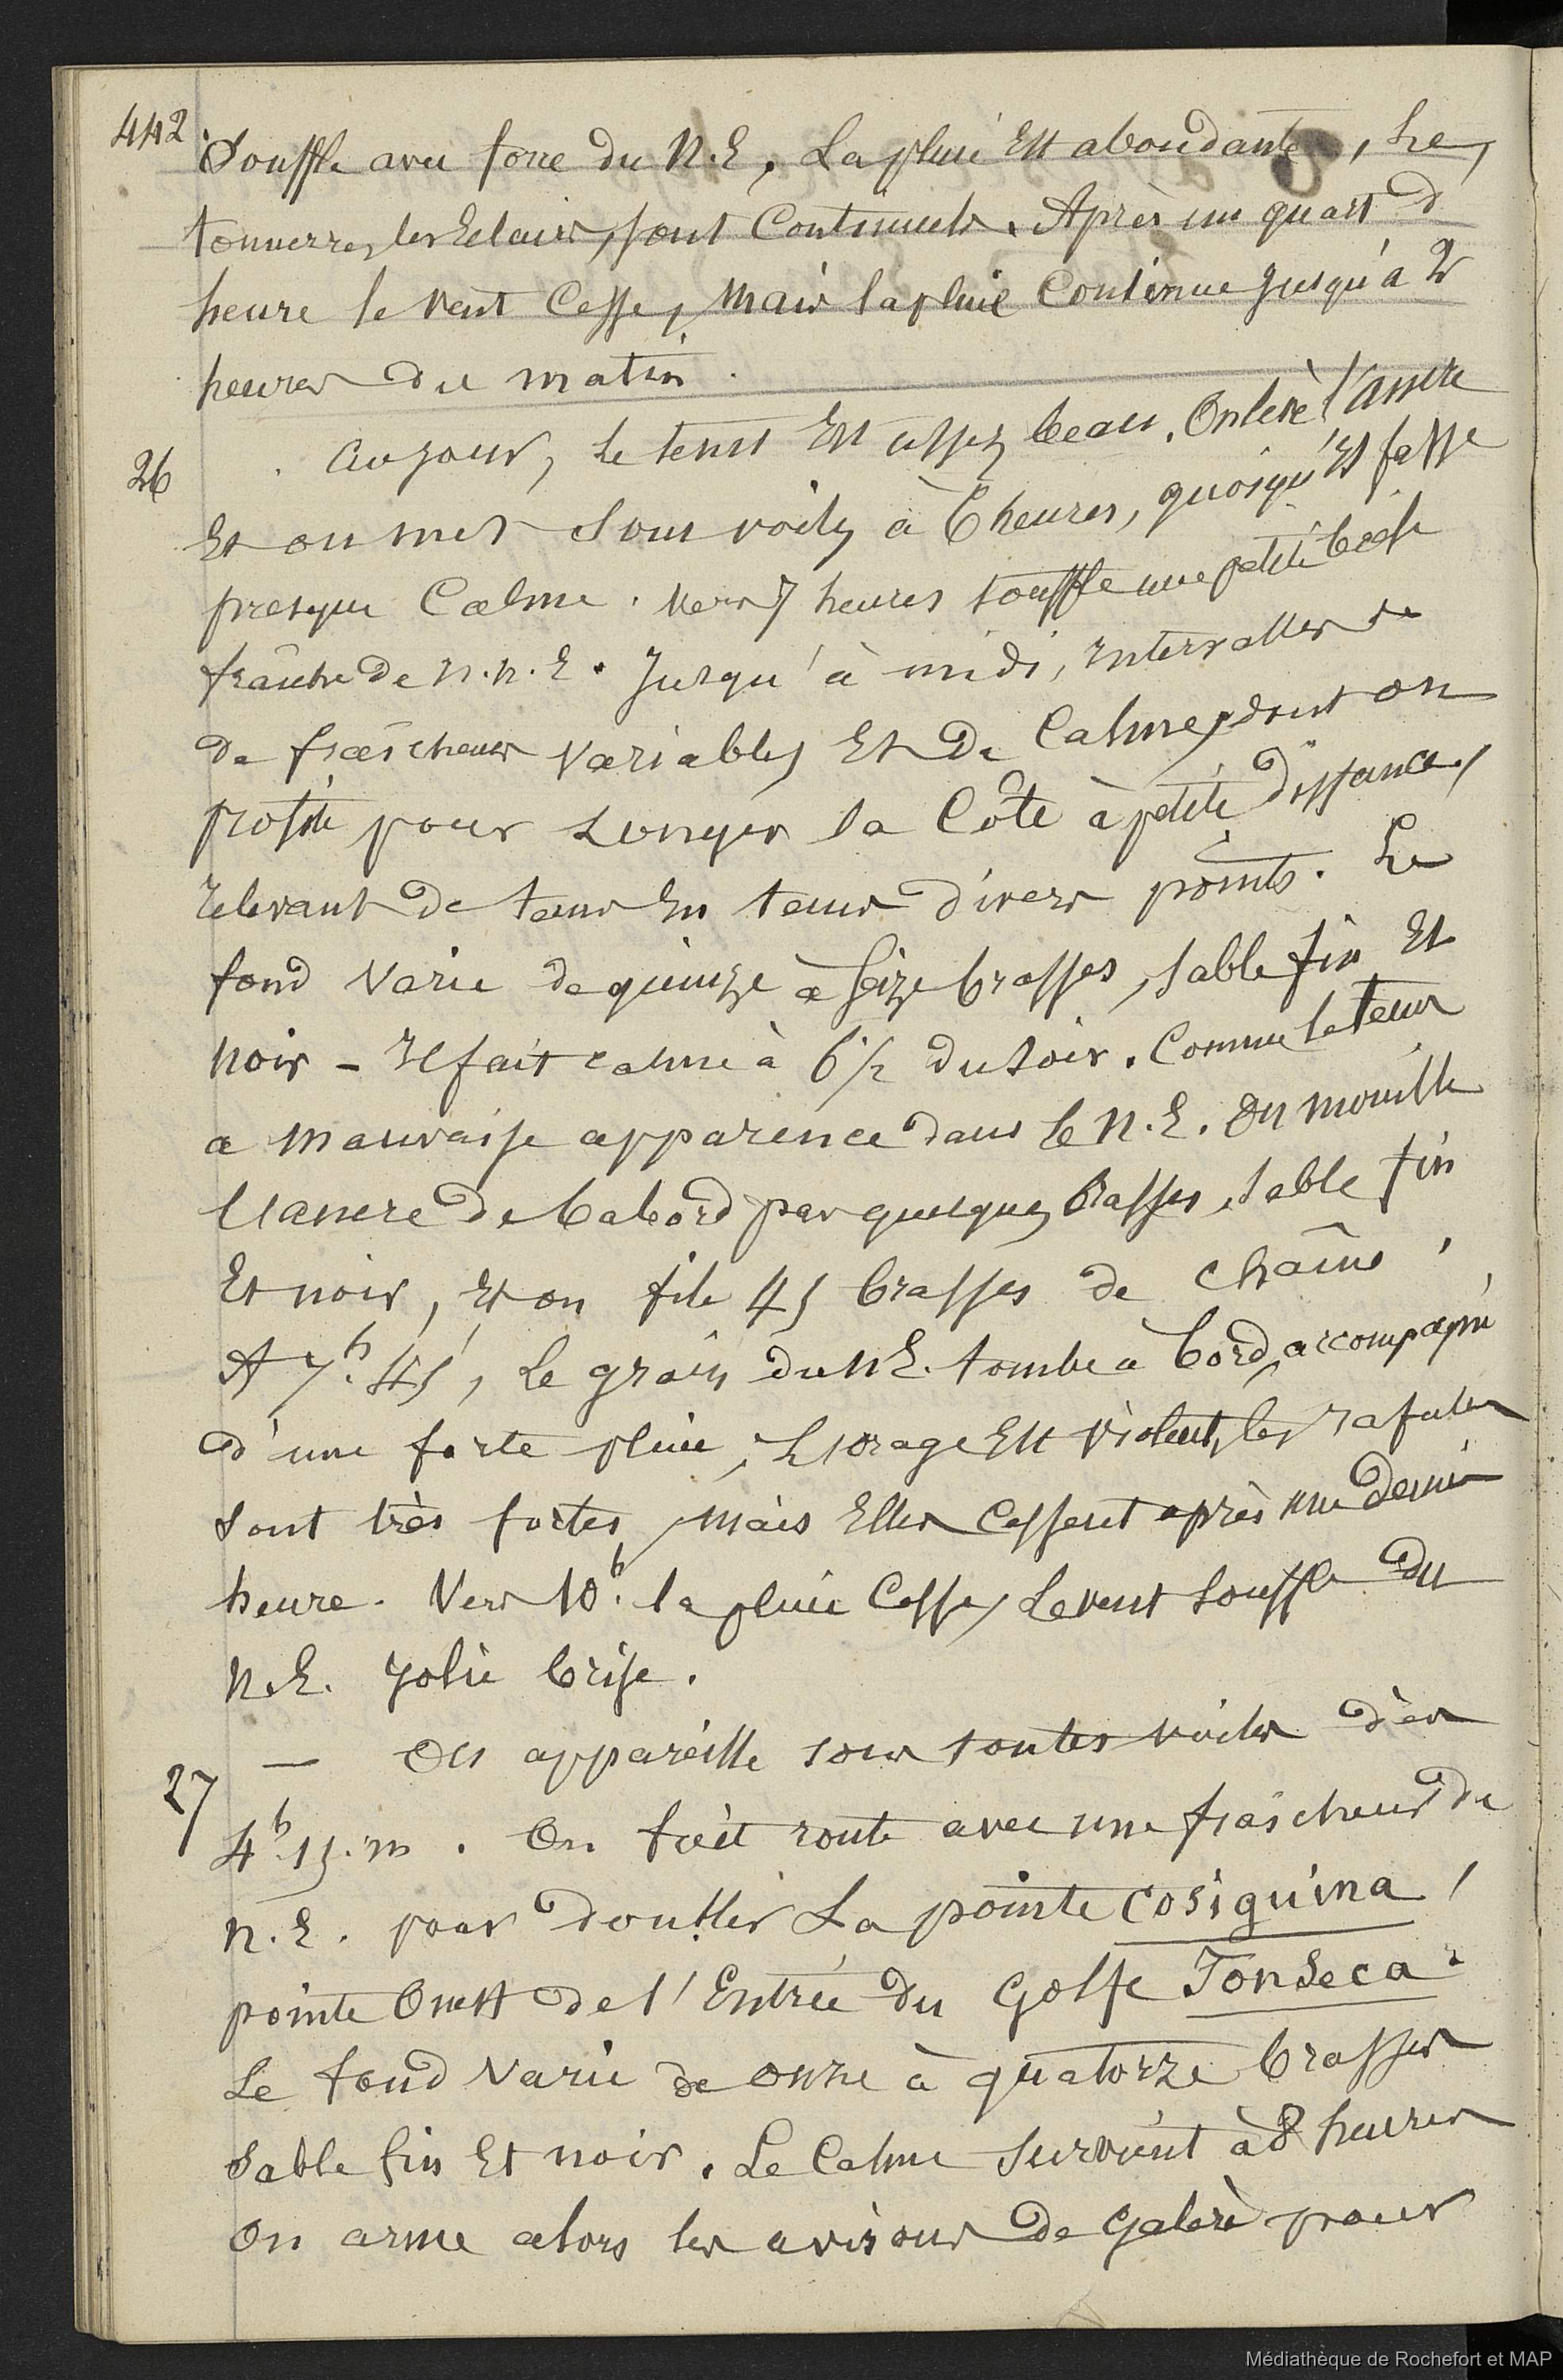 442
Souffle avec force du N.E, La pluie Est abondante, Les
tonnerres, les Eclairs, sont Continuels. Après un quart d
heure le vent Cesse, Mais la pluie Continue jusqu'à 2
heures du matin.
26
Au jour, Le tems Est assez beau. On lève l'ancre
Et on met sous voiles à 6 heures, quoiqu'il fasse
presque Calme. Vers 7 heures souffle une petite
fraîche de N.N.E. Jusqu'à midi, intervalles
de fraîcheurs Variables Et de Calme, dont on
profite pour Longer la Côte à petite distance,
relevant de tems En tems divers points. Le
fond Varie de quinze à seize brasses, sable fin Et
noir - Il fait calme à 6 1/2 du soir. Comme le tems
a mauvaise apparence dans le N.E. On mouille
l'ancre de babord par quelques brasses, sable fin
Et noir, Et on file 45 brasses de chaîne,
A 7h.45, Le grain du N.E. tombe à bord, accompagné
d'une forte pluie, L'orage Est violent, les rafales
sont très fortes, mais Elles Cessent après une demi
heure. Vers 10h. la pluie Cesse, Le vent souffle du
N.E. jolie brise.
27
— On appareille sous toutes voiles dès
4h.15.m. On fait route avec une fraîcheur du
N.E. pour doubler La pointe Cosiguina,
pointe Ouest de l'Entrée du Golfe Fonseca.
Le fond Varie de onze à quatorze brasses
Sable fin Et noir. Le Calme survient à 8 heures
On arme alors les avirons de galère pour
Médiathèque de Rochefort et MAP